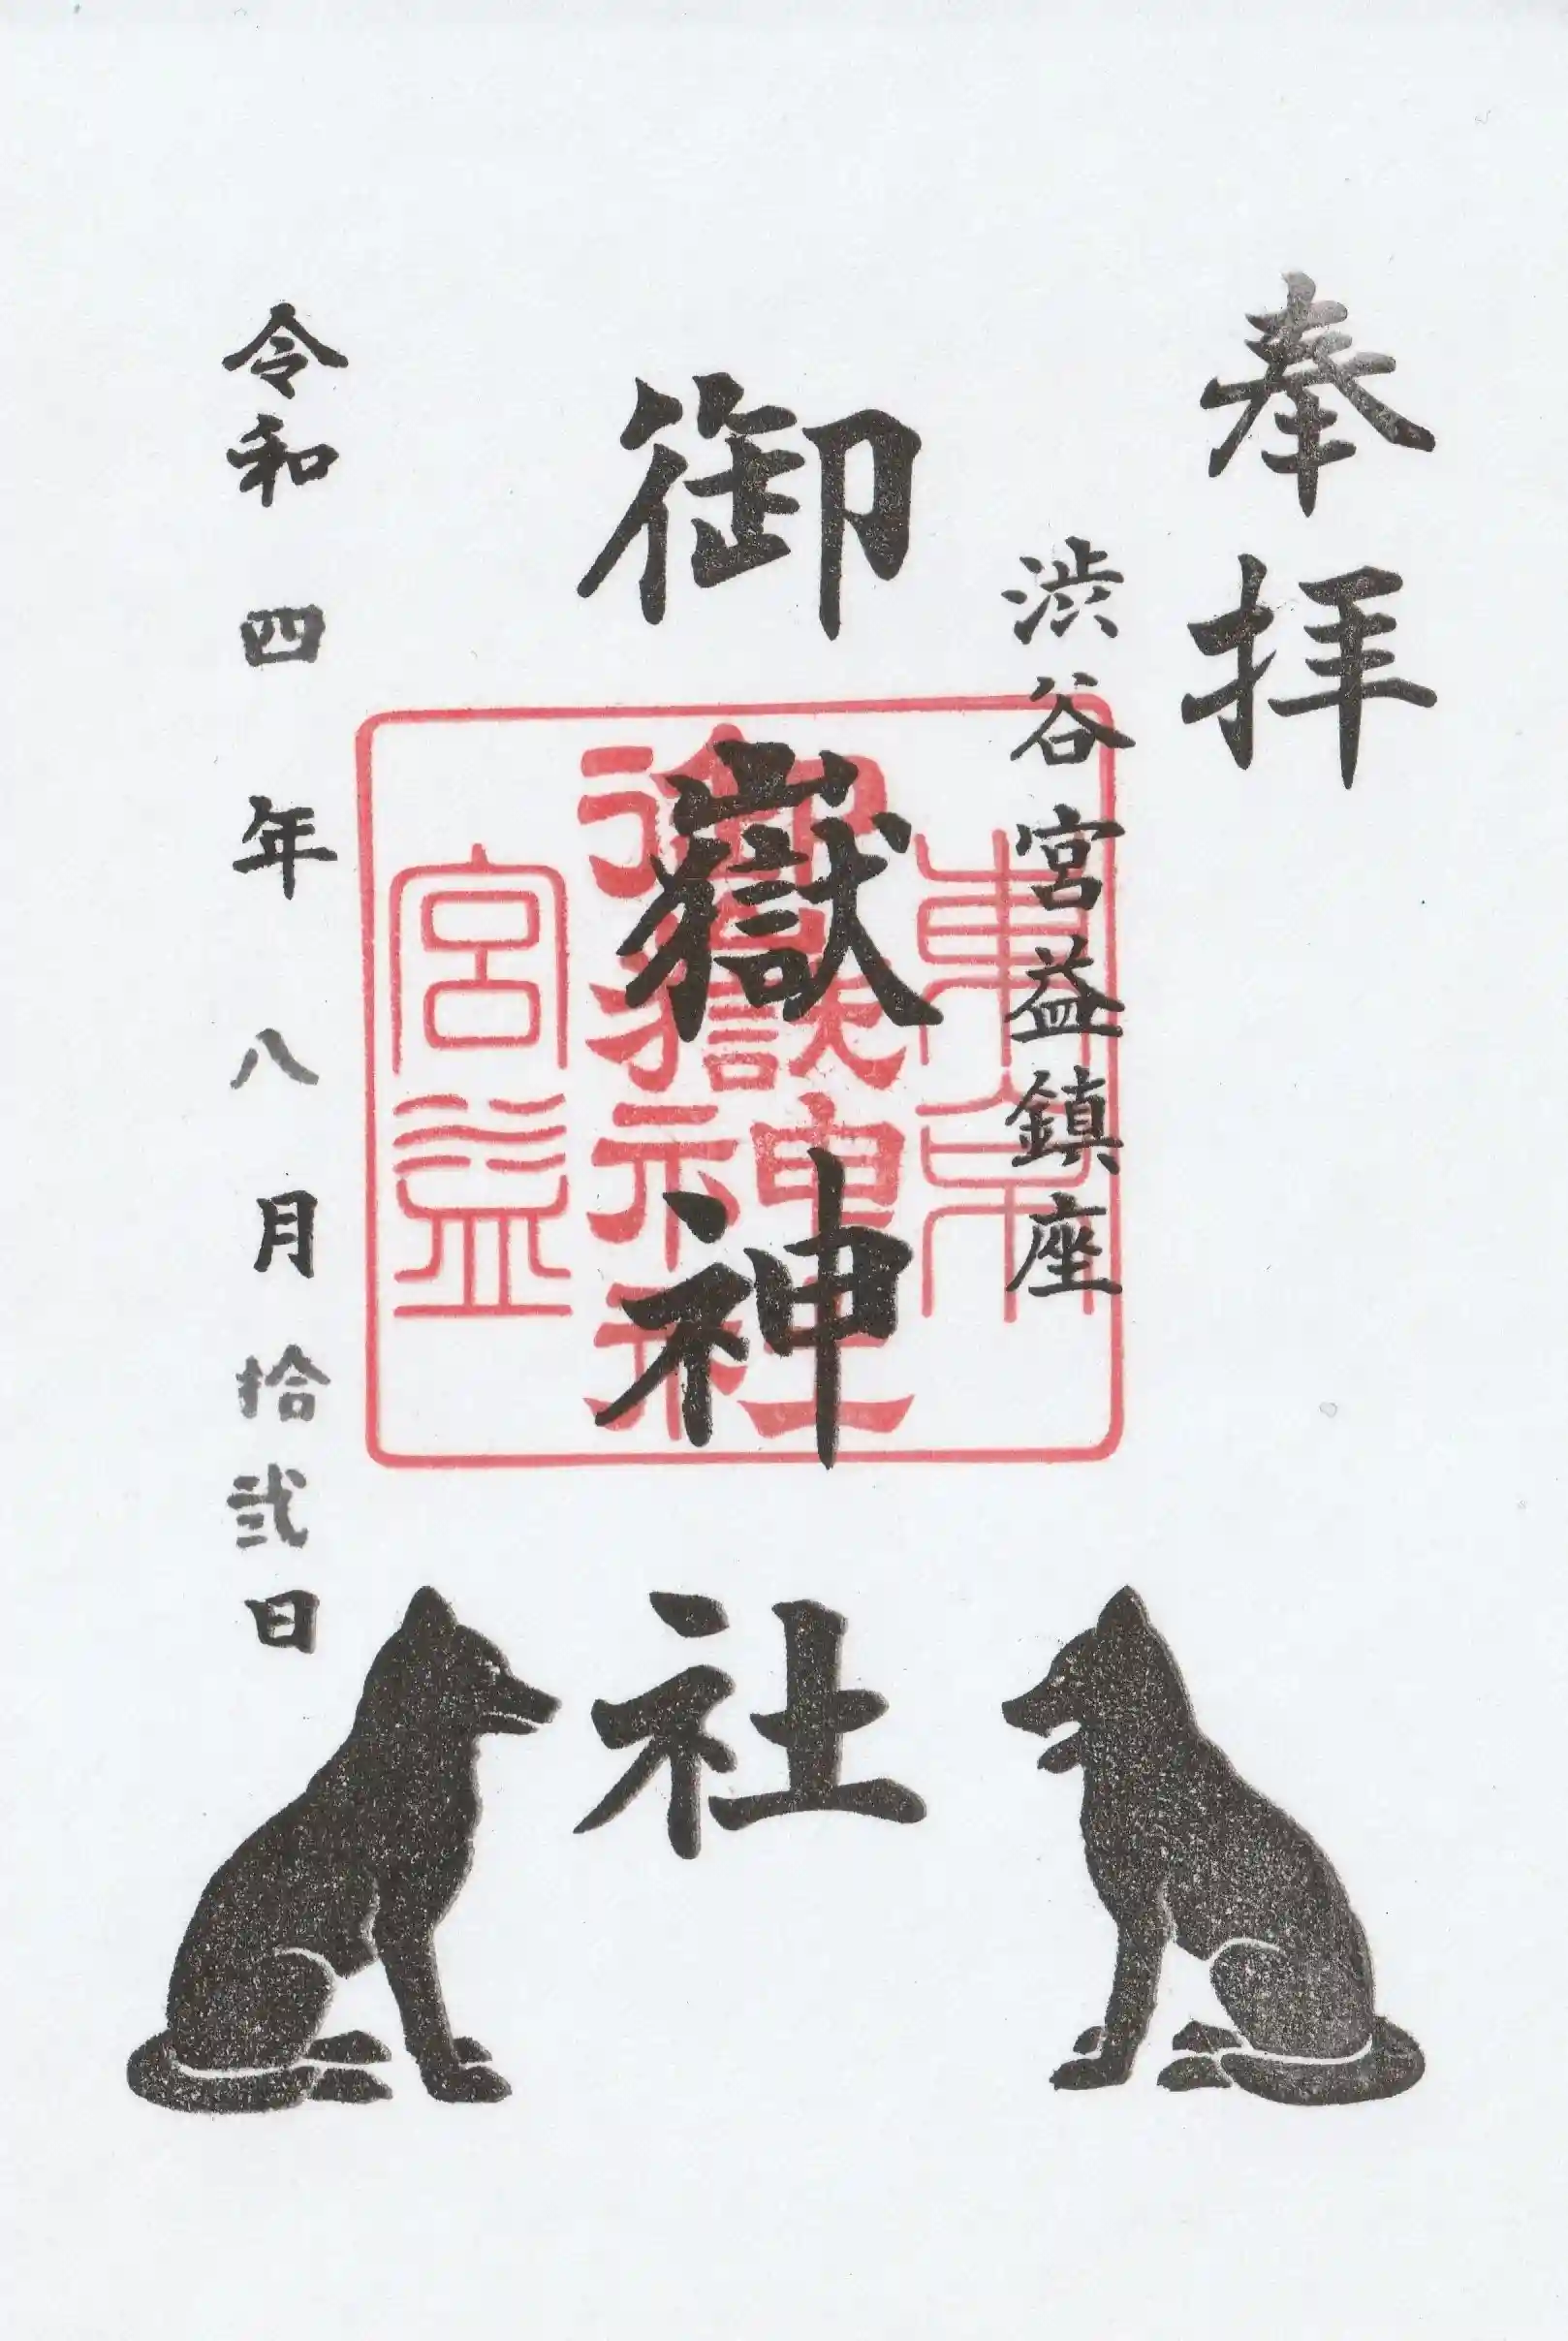 奉拝
渋谷宮益鎮座
御嶽神社
令和四年八月拾弐日
東京
御嶽神社
宮益